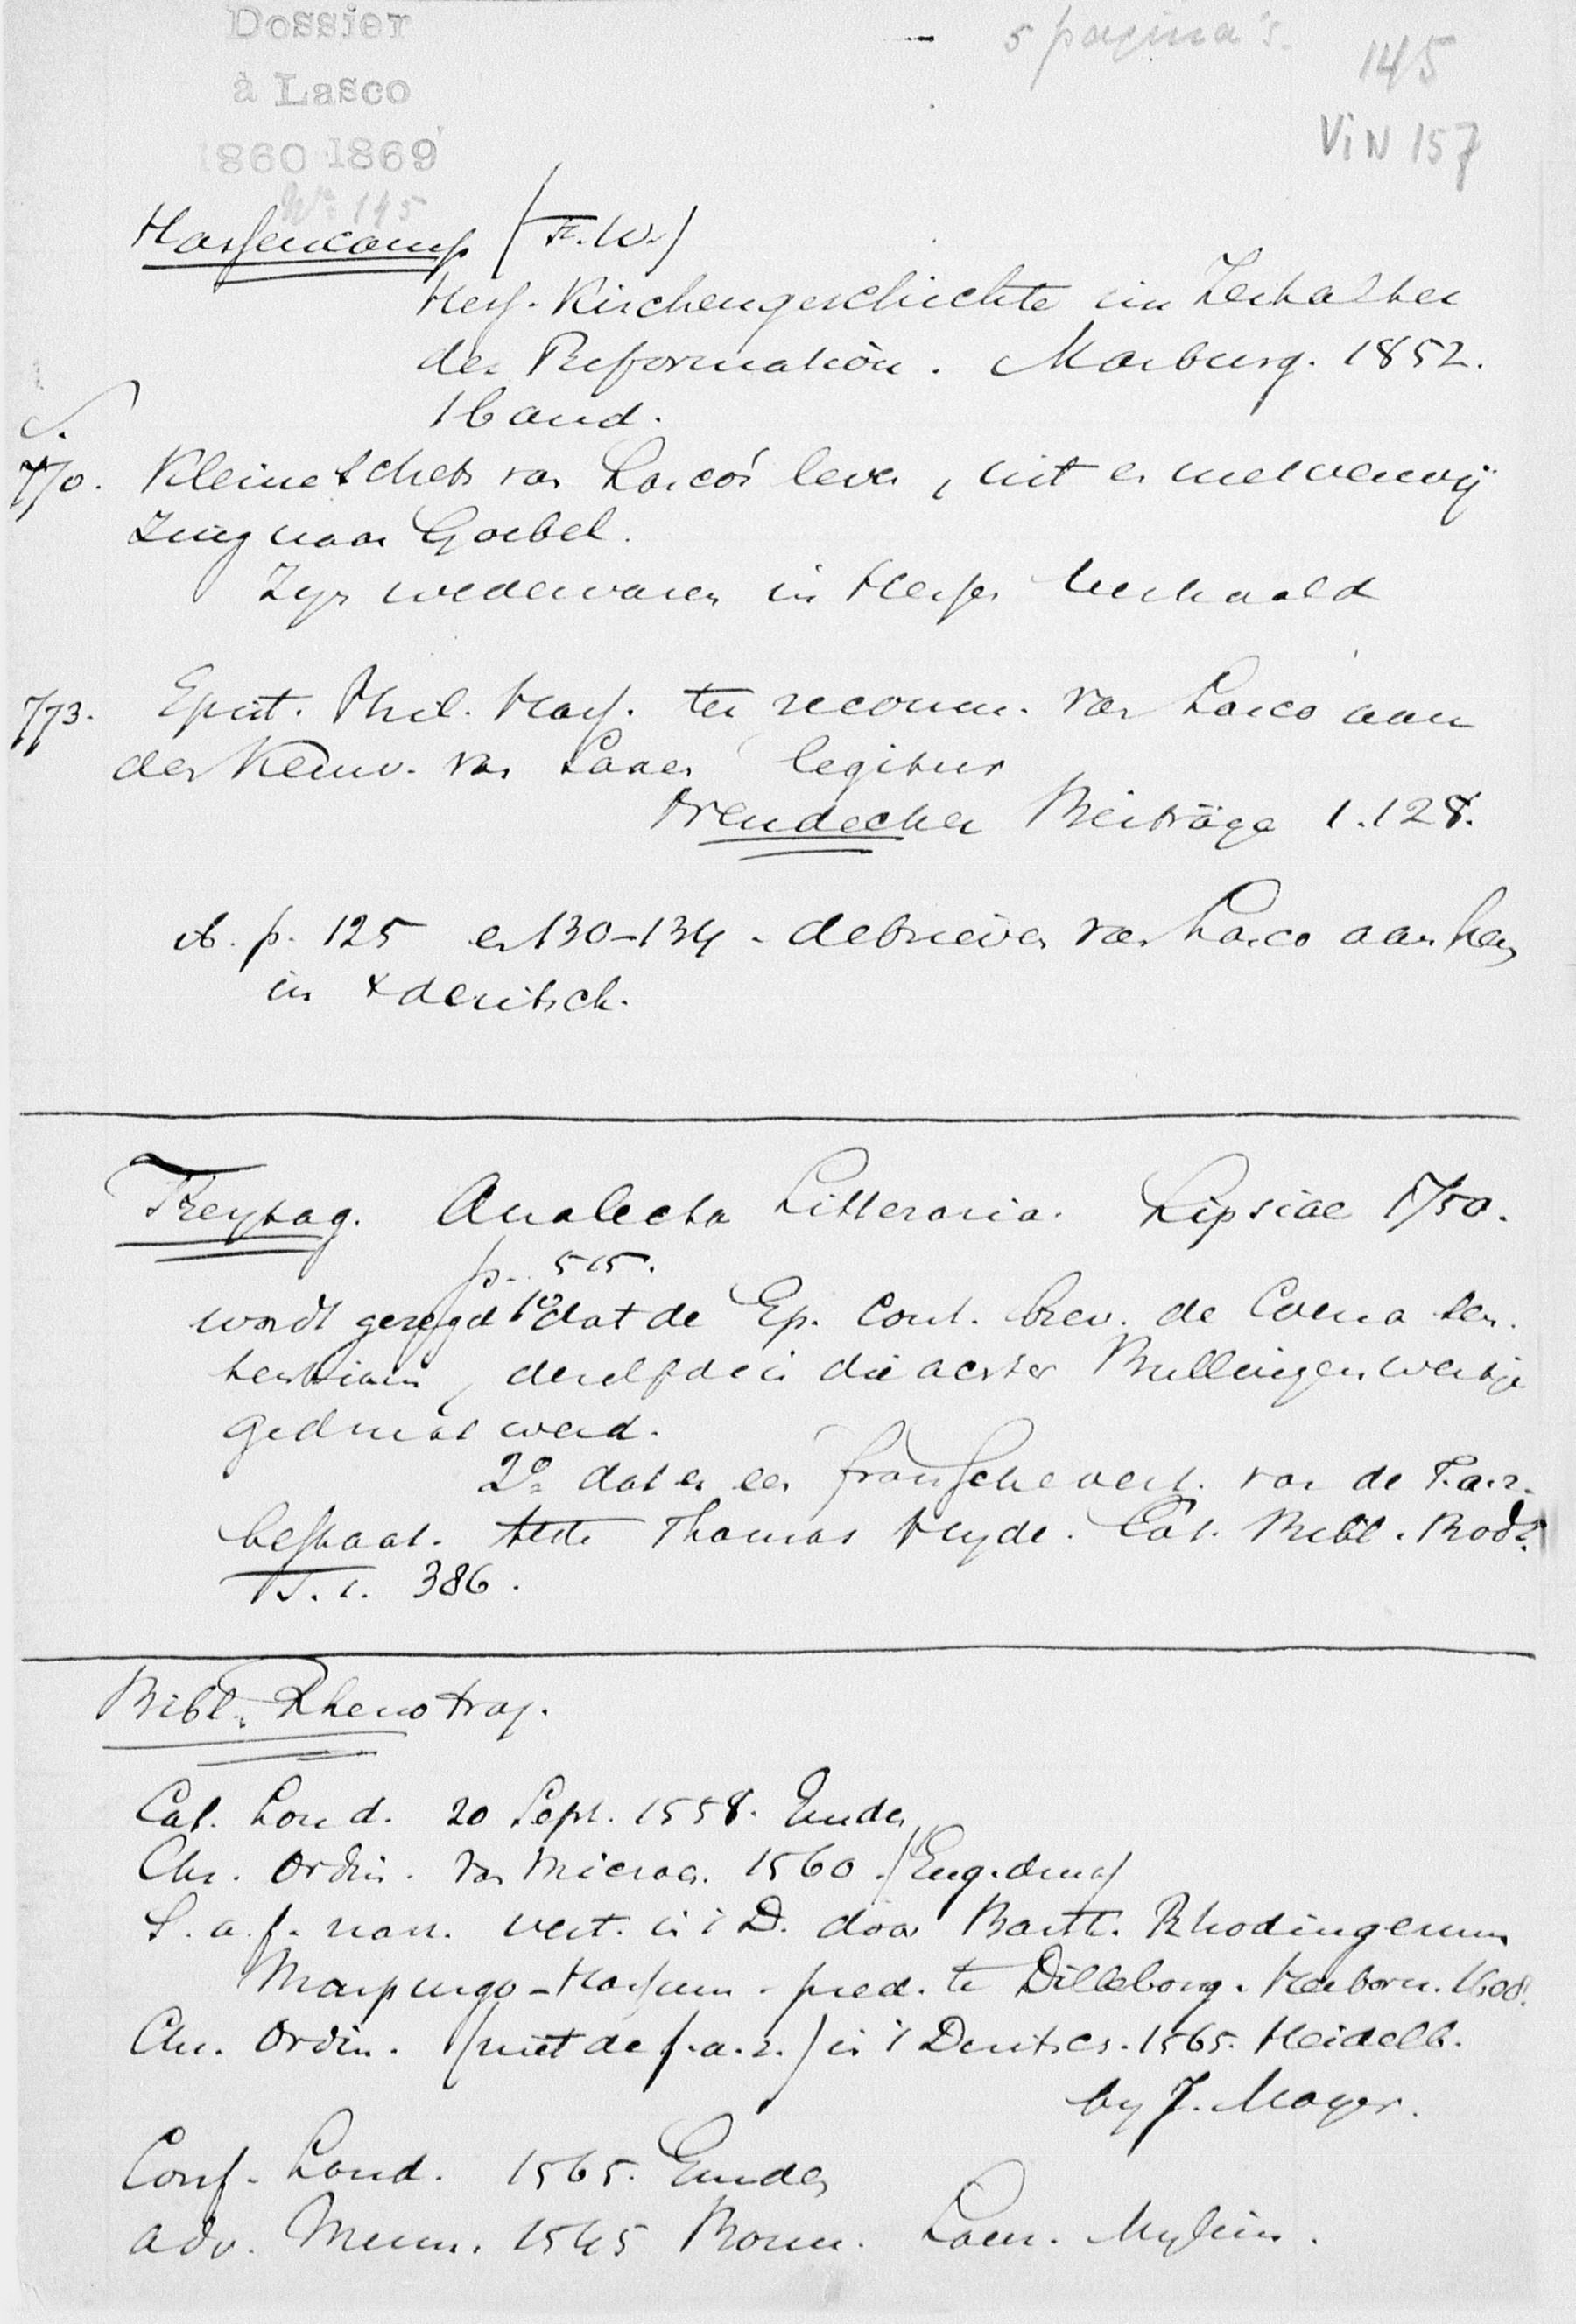 Dossier
à Lasco
1860 1869
No 145
5 pagina's.
145
VIN 157
Hassencamp (F.W.)
Hess. Kirchengeschichte im Zeitalter
der Reformation. Marburg. 1852.
1 band.
S.
770. Kleine schets van Lasco's leven, uit en met verwij
zing naar Goebel.
Zijn wedervaren in Hessen verhaald
773. Epist. Phil. Hass. ter recomm. van Lasco aan
den Keurv. van legitur
Neudecker Beiträge 1.128.
ib. p. 125 en 130-134. de brieven van Lasco aan
in deutsch.
Freytag. Analecta Litteraria. Lipsiae 1750.
p. 515.
wordt gezegd 1o dat de Ep. cont. brev. de Coena sen.
tentiam, dezelfde is die achter Bullingers werkje
gedrukt werd.
2o dat er een fransche vert. van de F.a.r.
bestaat. teste Thomas Hyde. Cat. Bibl. Bodl.
T. 1. 386.
Bibl. Rhenotraj.
Cat. Lond. 20 Sept. 1558. Emden
Chr. Ordin. van Micron. 1560. (Eng. druk)
S. a. f. narr. vert. in 't D. door Barth. Rhodingenum
Marpurgo-Hassum. pred. te Dilleborg. Herborn. 1608.
Chr. Ordin. (niet de f.a.r.) in 't Duitsch. 1565. Heidelb.
by J. Mayer.
Conf. Lond. 1565. Emden
adv. Menn. 1545 Bonn. Laur. Mylius.